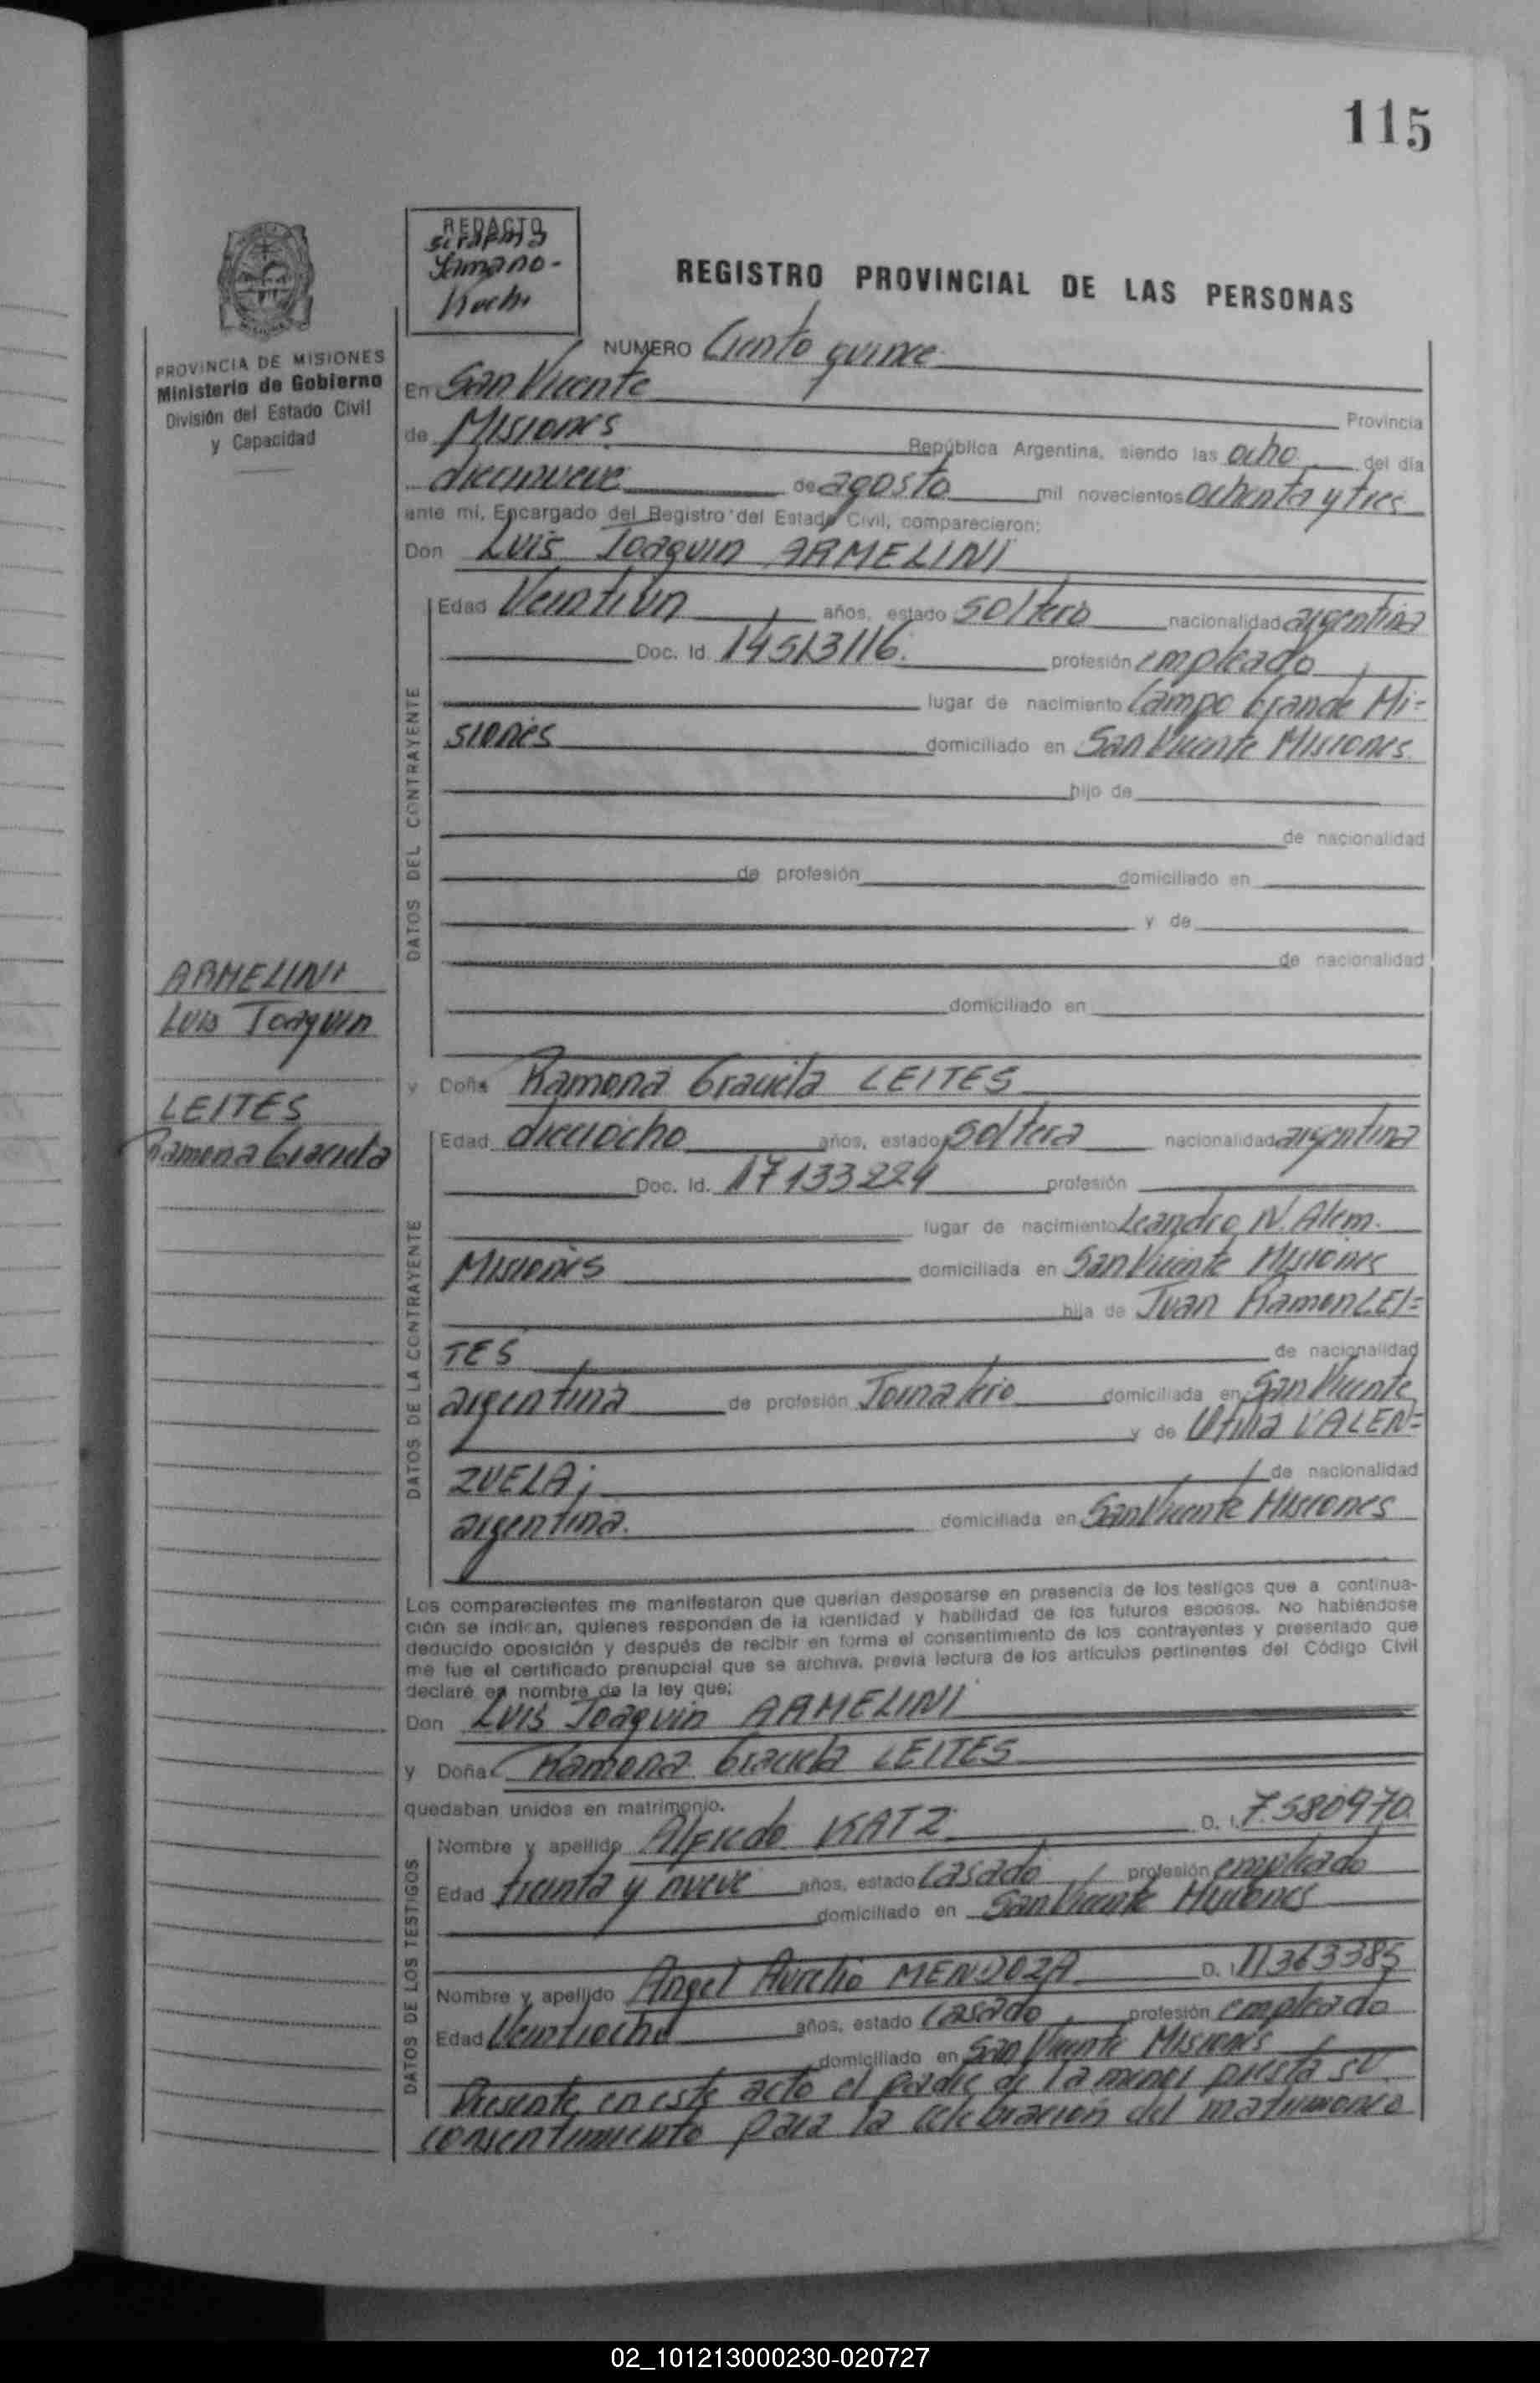 115
REDACTO
Serafina
Semano-
Koch
REGISTRO PROVINCIAL DE LAS PERSONAS
PROVINCIA DE MISIONES
Ministerio de Gobierno
División del Estado Civil
y Capacidad
NUMERO Ciento quince
En San Vicente Provincia
de Misiones República Argentina, siendo las ocho del día
diecinueve de agosto mil novecientos ochenta y tres
ante mí, Encargado del Registro del Estado Civil, comparecieron:
Don Luis Joaquin ARMELINI
DATOS DEL CONTRAYENTE
Edad Veintiun años, estado soltero nacionalidad argentina
Doc. Id. 14513116. profesión empleado
lugar de nacimiento Campo Grande Mi=
siones domiciliado en San Vicente Misiones
hijo de
de nacionalidad
de profesión domiciliado en
y de
de nacionalidad
domiciliado en
ARMELINI
Luis Joaquin
LEITES
Ramona Graciela
y Doña Ramona Graciela LEITES
DATOS DE LA CONTRAYENTE
Edad dieciocho años, estado soltera nacionalidad argentina
Doc. Id. 17133224 profesión
lugar de nacimiento Leandro N. Alem.
Misiones domiciliada en San Vicente Misiones
hija de Juan Ramon LEI=
TES de nacionalidad
argentina de profesión Jornalero domiciliada en San Vicente
y de VALEN=
ZUELA; de nacionalidad
argentina. domiciliada en San Vicente Misiones
Los comparecientes me manifestaron que querían desposarse en presencia de los testigos que a continua-
ción se indican, quienes responden de la identidad y habilidad de los futuros esposos. No habiéndose
deducido oposición y después de recibir en forma el consentimiento de los contrayentes y presentado que
me fue el certificado prenupcial que se archiva, previa lectura de los artículos pertinentes del Código Civil
declaré en nombre de la ley que;
Don Luis Joaquin ARMELINI
y Doña Ramona Graciela LEITES
quedaban unidos en matrimonio.
DATOS DE LOS TESTIGOS
Nombre y apellido Alfredo KATZ D. I. 7.580970.
Edad treinta y nueve años, estado casado profesión empleado
domiciliado en San Vicente Misiones
Nombre y apellido Angel Aurelio MENDOZA D. I. 11363385
Edad Veintiocho años, estado casado profesión empleado
domiciliado en San Vicente Misiones
Presente en este acto el padre de la menor presta su
consentimiento para la celebracion del matrimonio
02_101213000230-020727